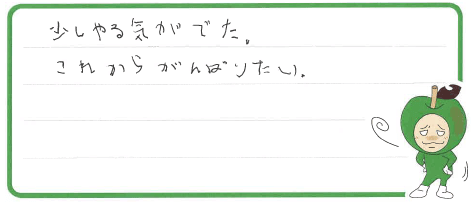 少しやる気がでた。
これからがんばりたい。